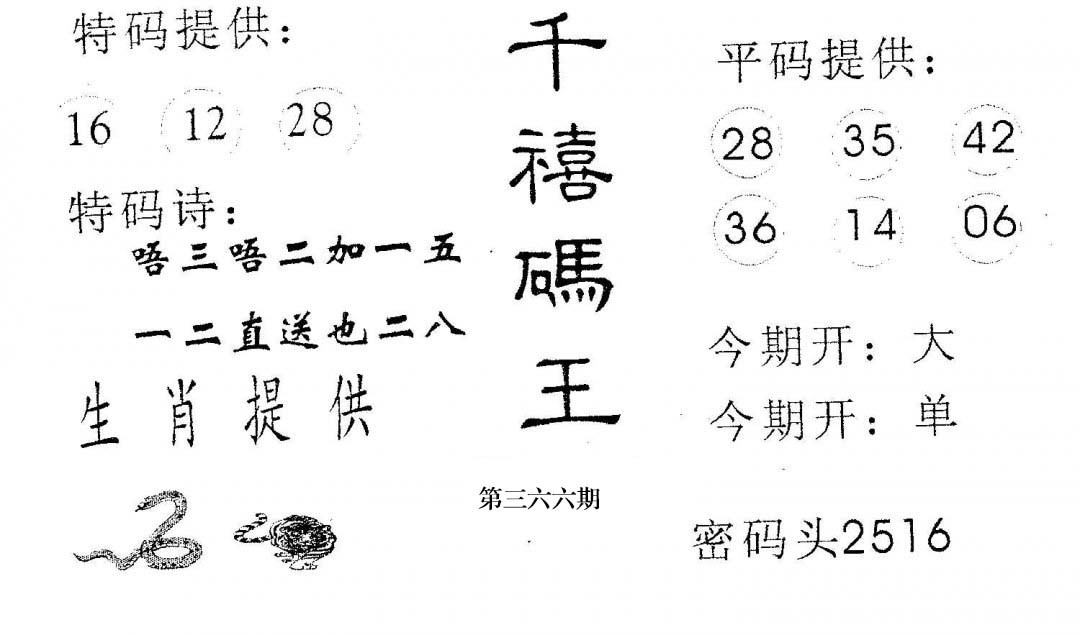 特码提供：
16 12 28
特码诗：
唔三唔二加一五
一二直送也二八
生肖提供
千禧碼王
第三六六期
平码提供：
28 35 42
36 14 06
今期开：大
今期开：单
密码头2516